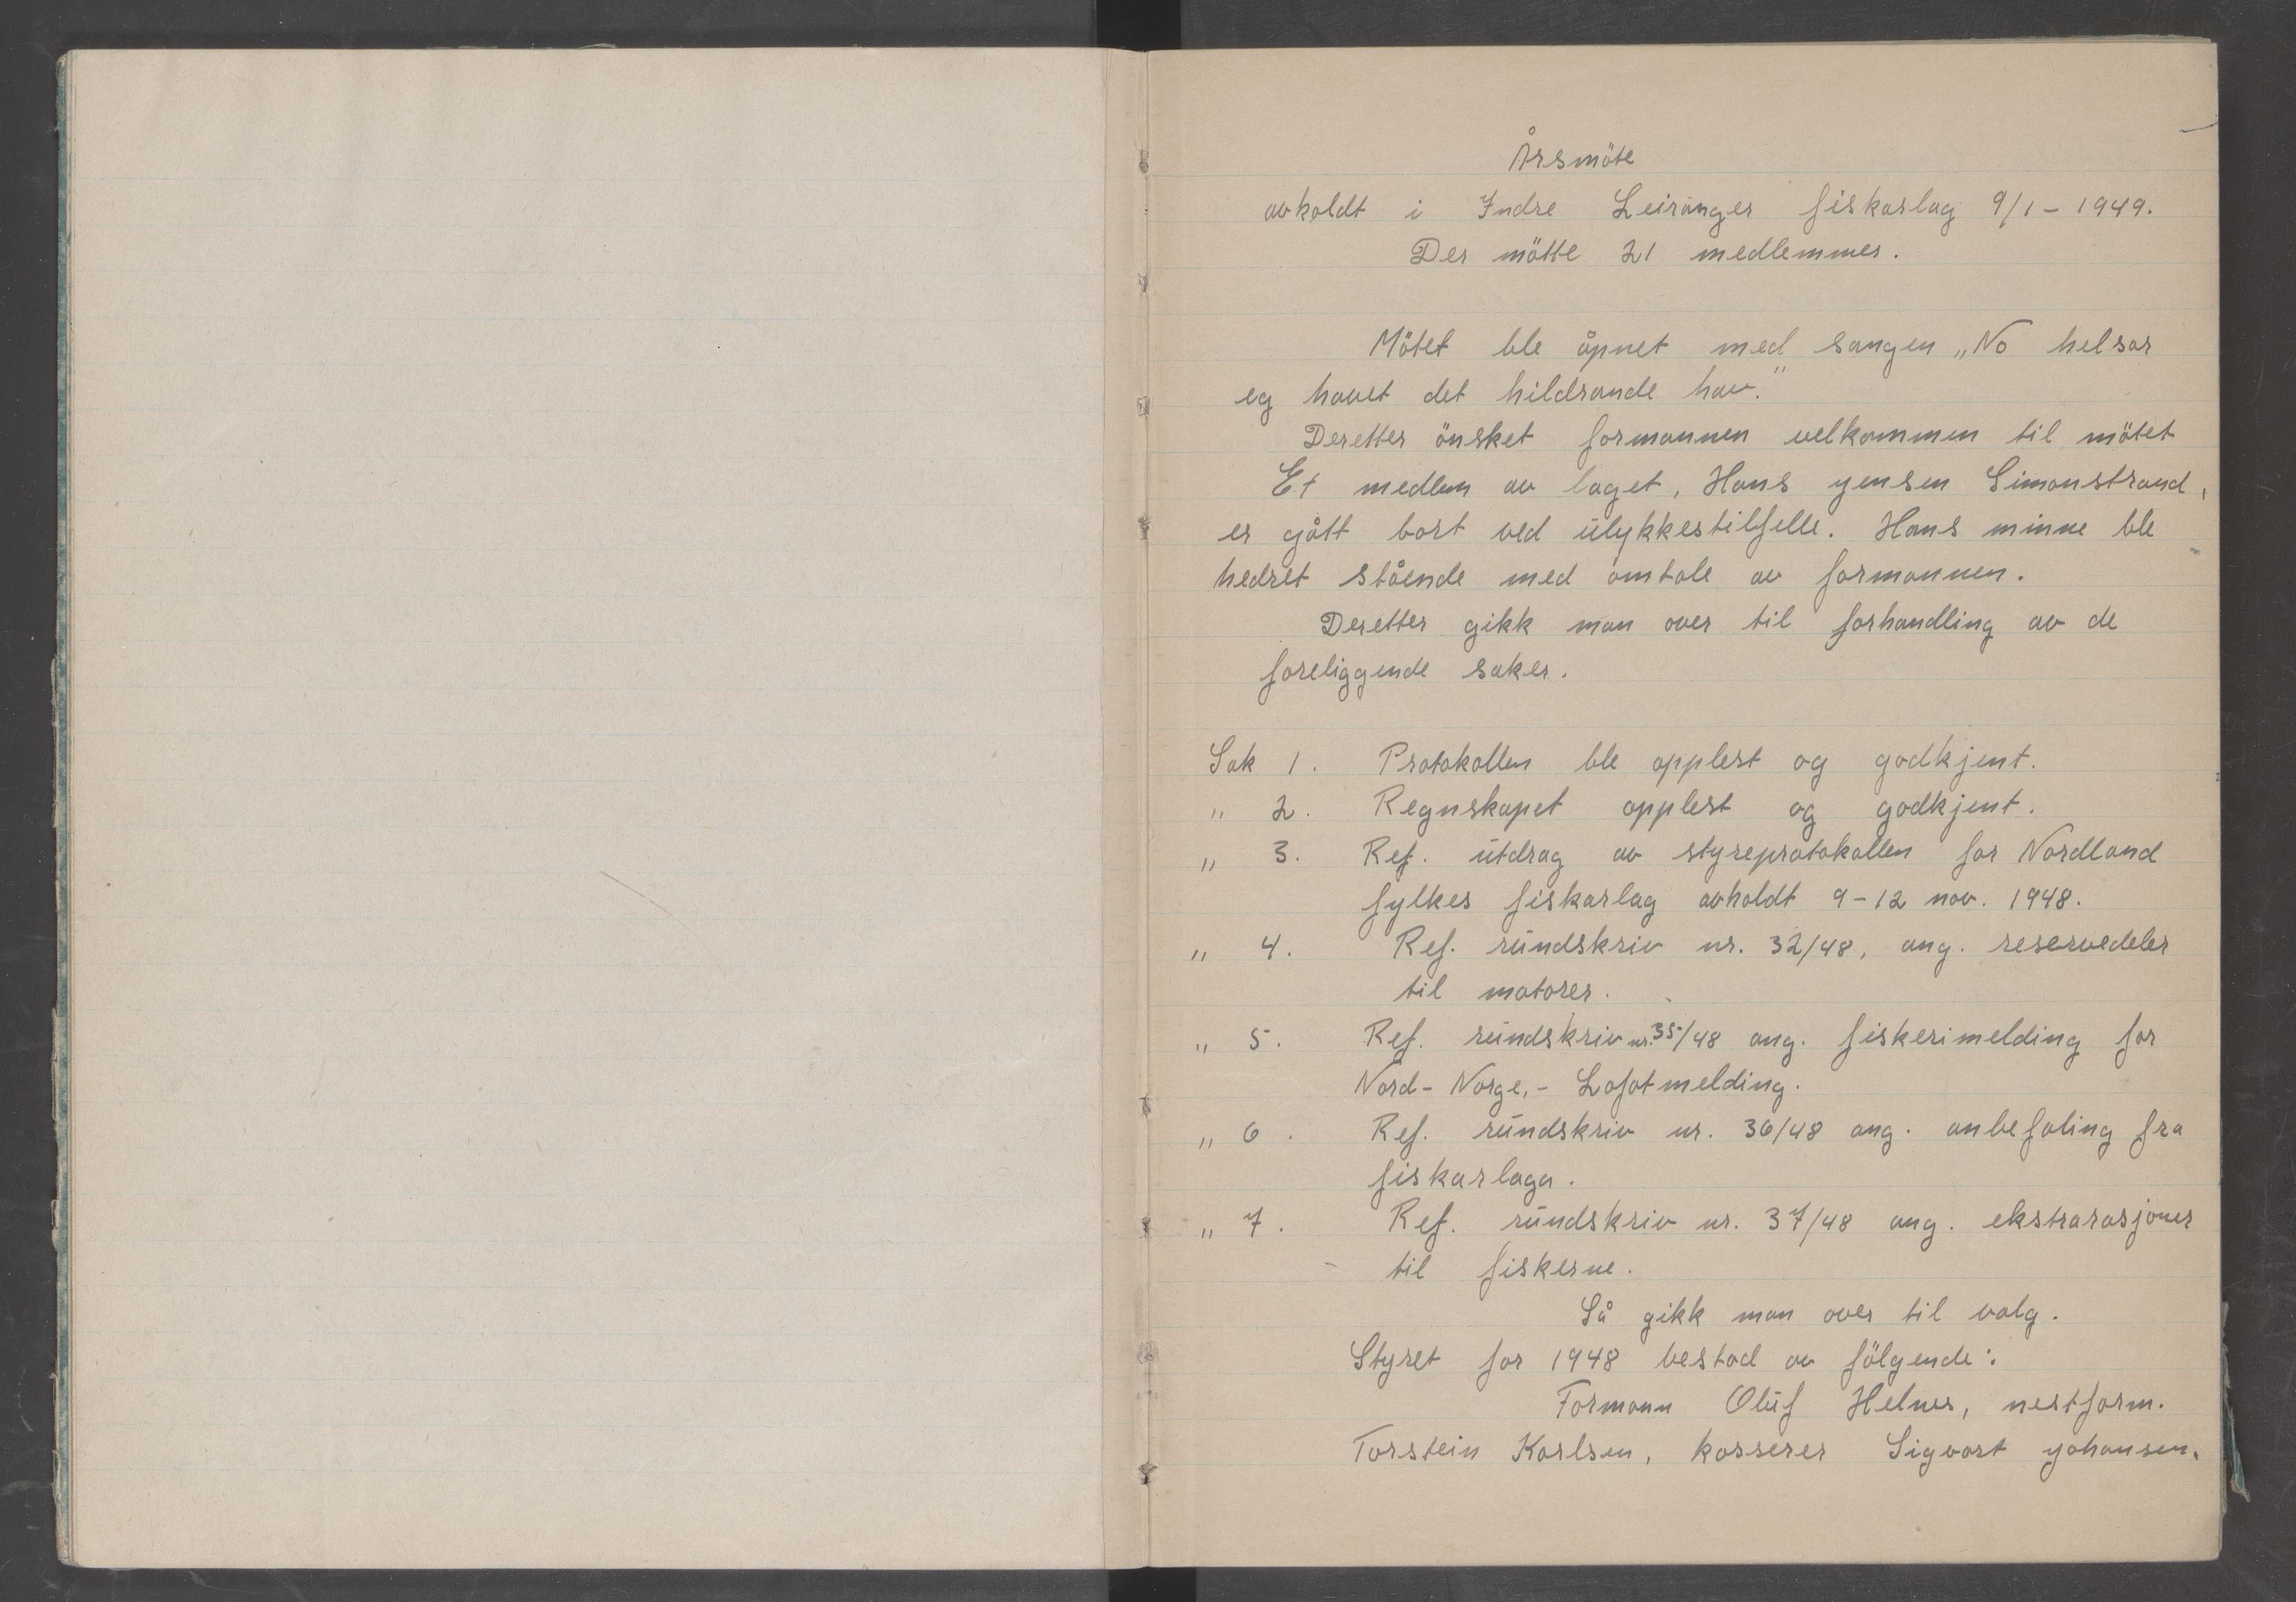 Årsmöte
avholdt i Indre Leiranger fiskarlag 9/1-1949.
Der mötte 21 medlemmer.
Mötet ble åpnet med sangen „No helsar
eg havet det hildrande hav."
Deretter önsket formannen velkommen til mötet
Et medlem av laget, Hans Jensen Simonstrand,
er gått bort ved ulykkestilfelle. Hans minne ble
hedret stående med omtale av formannen.
Deretter gikk man over til forhandling av de
foreliggende saker.
Sak 1. Protokollen ble opplest og godkjent.
„ 2. Regnskapet opplest og godkjent.
„ 3. Ref. utdrag av styreprotokollen for Nordland
fylkes fiskarlag avholdt 9-12 nov. 1948.
„ 4. Ref. rundskriv nr. 32/48, ang. reservedeler
til motorer.
„ 5. Ref. rundskriv nr. 35/48 ang. fiskerimelding for
Nord-Norge,- Lofotmelding.
„ 6. Ref. rundskriv nr. 36/48 ang. anbefaling fra
fiskarlaga.
„ 7. Ref. rundskriv nr. 37/48 ang. ekstrarasjoner
til fiskerne.
Så gikk man over til valg.
Styret for 1948 bestod av fölgende:
Formann Oluf Helnes, nestform.
Torstein Karlsen, kasserer Sigvart Johansen.